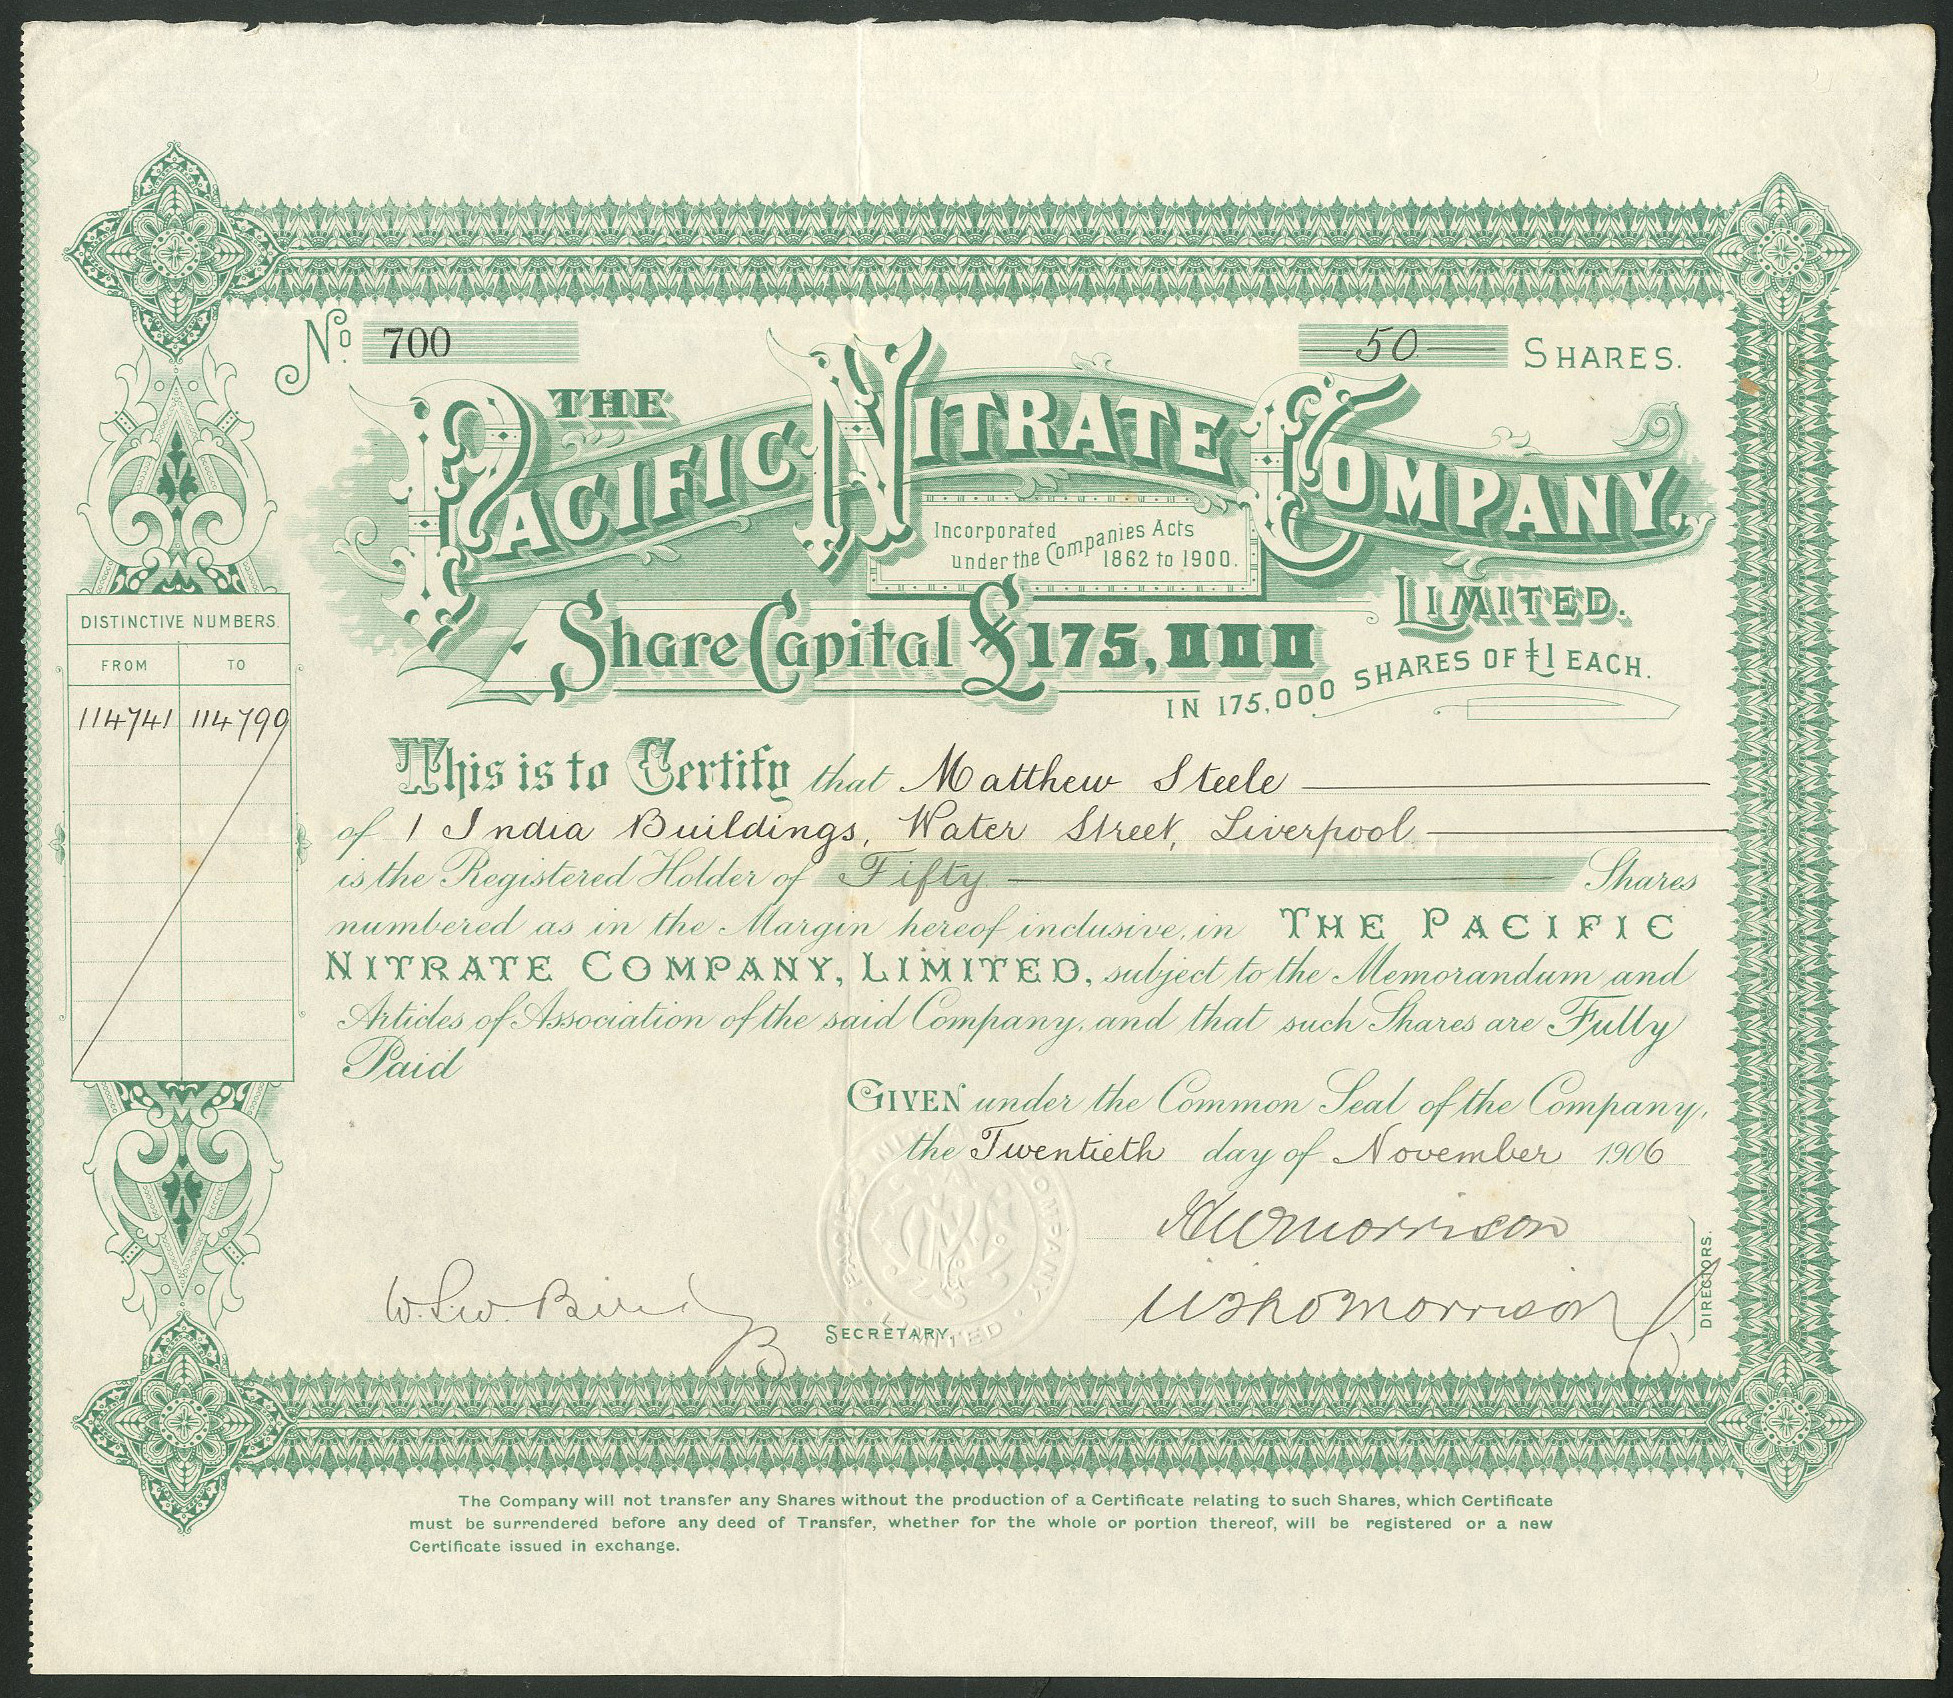 No. 700
50 SHARES.
THE
PACIFIC NITRATE COMPANY,
Incorporated
under the Companies Acts
1862 to 1900.
LIMITED.
Share Capital £175,000
IN 175,000 SHARES OF £1 EACH.
DISTINCTIVE NUMBERS
FROM TO
114741 114790
This is to Certify that Matthew Steele
of 1 India Buildings, Water Street, Liverpool
is the Registered Holder of Fifty Shares
numbered as in the Margin hereof inclusive, in THE PACIFIC
NITRATE COMPANY, LIMITED, subject to the Memorandum and
Articles of Association of the said Company, and that such Shares are Fully
Paid
GIVEN under the Common Seal of the Company,
the Twentieth day of November 1906
Morrison
Morrison
DIRECTORS.
W. S. W.
SECRETARY.
PACIFIC NITRATE COMPANY LIMITED
The Company will not transfer any Shares without the production of a Certificate relating to such Shares, which Certificate
must be surrendered before any deed of Transfer, whether for the whole or portion thereof, will be registered or a new
Certificate issued in exchange.